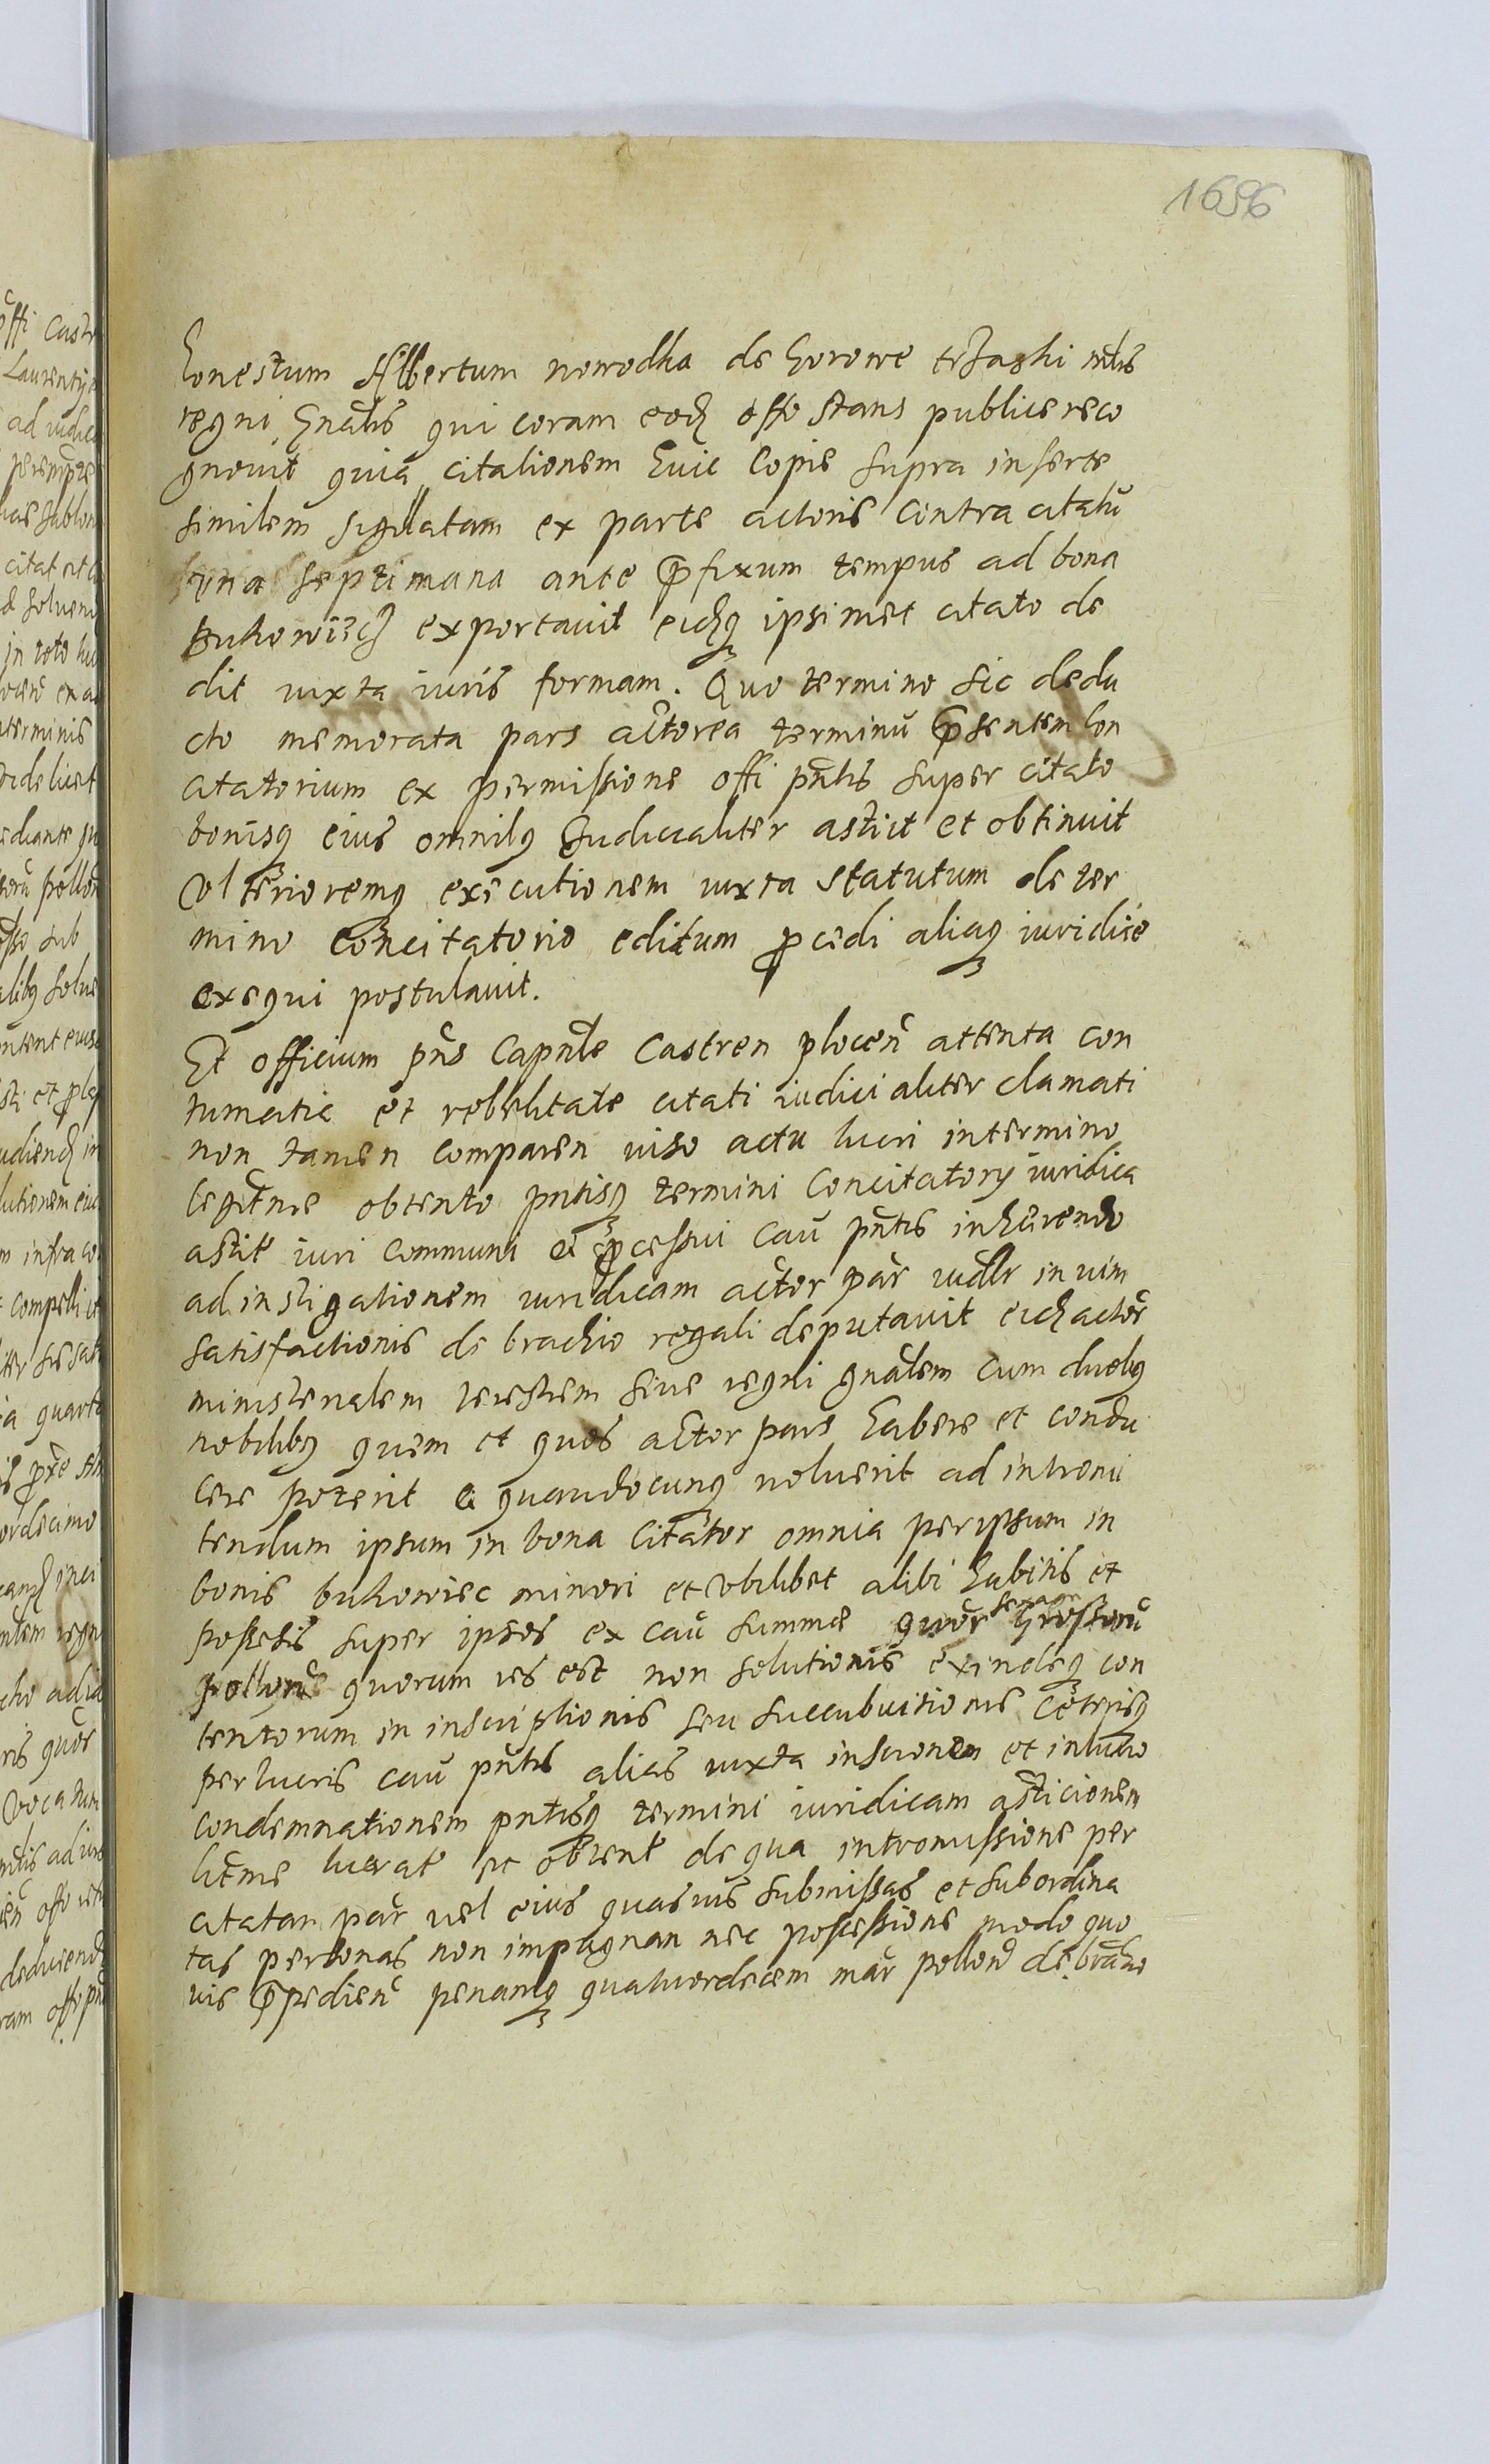 1696
honestum Albertum nowodka de horowe trzaski mlis
regni gnalis qui coram eod offo stans publice reco
gnouit quia citationem huic Copie supra inserte
similem sigillatam ex parte actoris Contra citatu
vna septimana ante pfixum tempus ad bona
Bukowiecz exportauit eidq ipsimet citato de
dit iuxta iuris formam. Quo termino sic dedu
cto memorata pars actorea terminu psentem Con
citatorium ex permissione offi pntis super citato
bonisq eius omnibq Judicialiter astitit et obtinuit
Vlterioremq executionem iuxta statutum de ter
mino Concitatorio editum pcedi aliaq iuridice
exequi postulauit.
Et officium pns Capnle Castren plocen attenta con
tumatia et rebellitate citati iudicialiter clamati
non tamen comparen uiso actu lucri in termino
legitme obtento pntisq termini Concitatory iuridica
astit iuri communi et pcessui cau pntis inherendo
ad instigationem iuridicam actor par iudlr in uim
satisfactionis de brachio regali deputauit eid actor
ministerialem terestrem siue regni gnalem cum duobq
nobilibq quem et quos actor pars habere et condu
cere poterit et quandocunq uoluerit ad intromit
tendum ipsum in bona Citator omnia per ipsum in
bonis bukowiec minori et vbilibet alibi habitis et
possesis super ipsos ex cau summe quor sexagr grossoru
pollon quorum res est non solutionis exindeq con
tentorum in inscriptionis seu succubuitionis Cetrisq
per lucris cau pntis alias iuxta inscrionem et in lucro
condemnationem pntisq termini iuridicam asticionem
litme lucrat et obtent de qua intromissione per
citatam par uel eius quasuis submissas et subordina
tas personas non impugnan nec possessione modo quo
uis ppedien penamq quatuordecem mar pollon de brachio